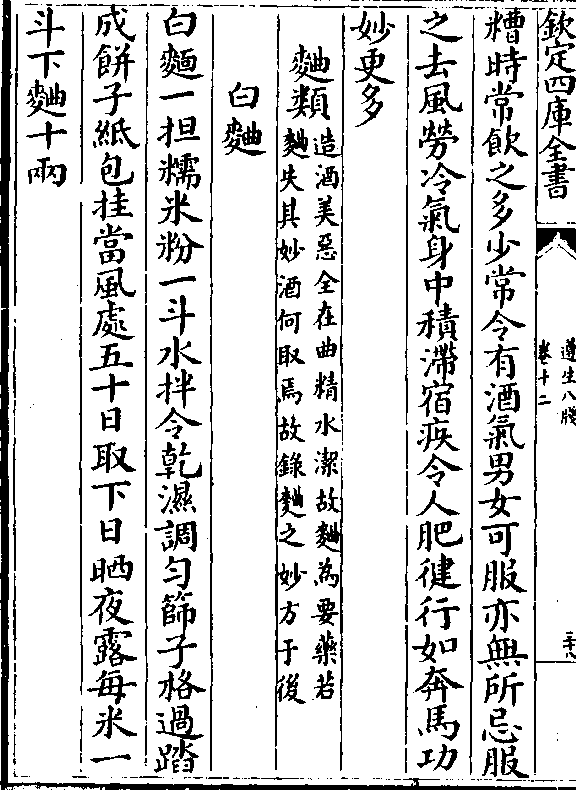 欽定四庫全書
遵生八牋
卷十二
三十八
糟時常飲之多少常令有酒氣男女可服亦無所忌服
之去風勞冷氣身中積滯宿疾令人肥健行如奔馬功
妙更多
麯類造酒美惡全在曲精水潔故麯為要藥若
麯失其妙酒何取焉故錄麯之妙方于後
白麯
白麵一担糯米粉一斗水拌令乾濕調勻篩子格過踏
成餅子紙包挂當風處五十日取下日晒夜露每米一
斗下麯十兩